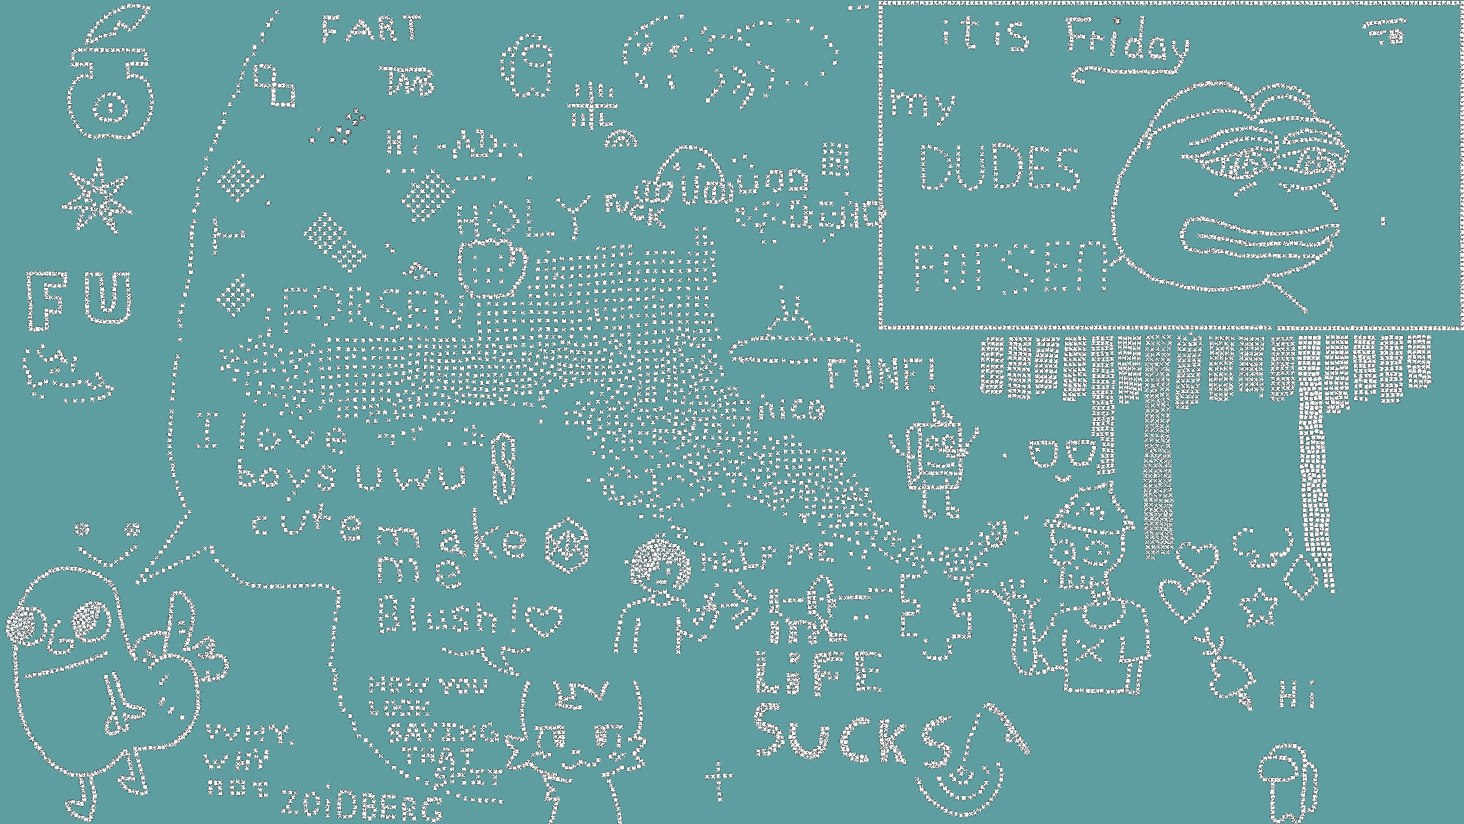 FART
it is Friday
TAB
my
Hi
DUDES
HOLY
FUCK
uwu
FORSEN
FORSEN
FU
FUNF!
nico
I love
boys uwu
cute
make
me
Blush!
HELP ME
LiFE
SUCKS
Hi
HOW YOU
LOOK
SAYING
THAT
SHIT
WHY.
WHY
NOT
ZOiDBERG